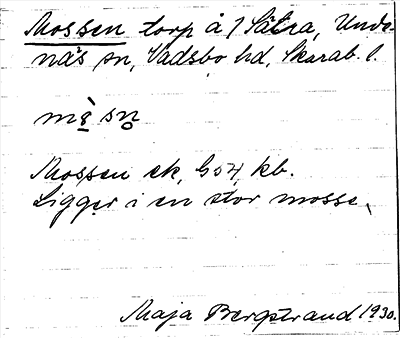 Mossen torp å 1 Sätra, Unde-
näs sn, Vadsbo hd, Skarab. l.
Mossen ek, G 54, kb.
Ligger i en stor mosse.
Maja Bergstrand 1930.